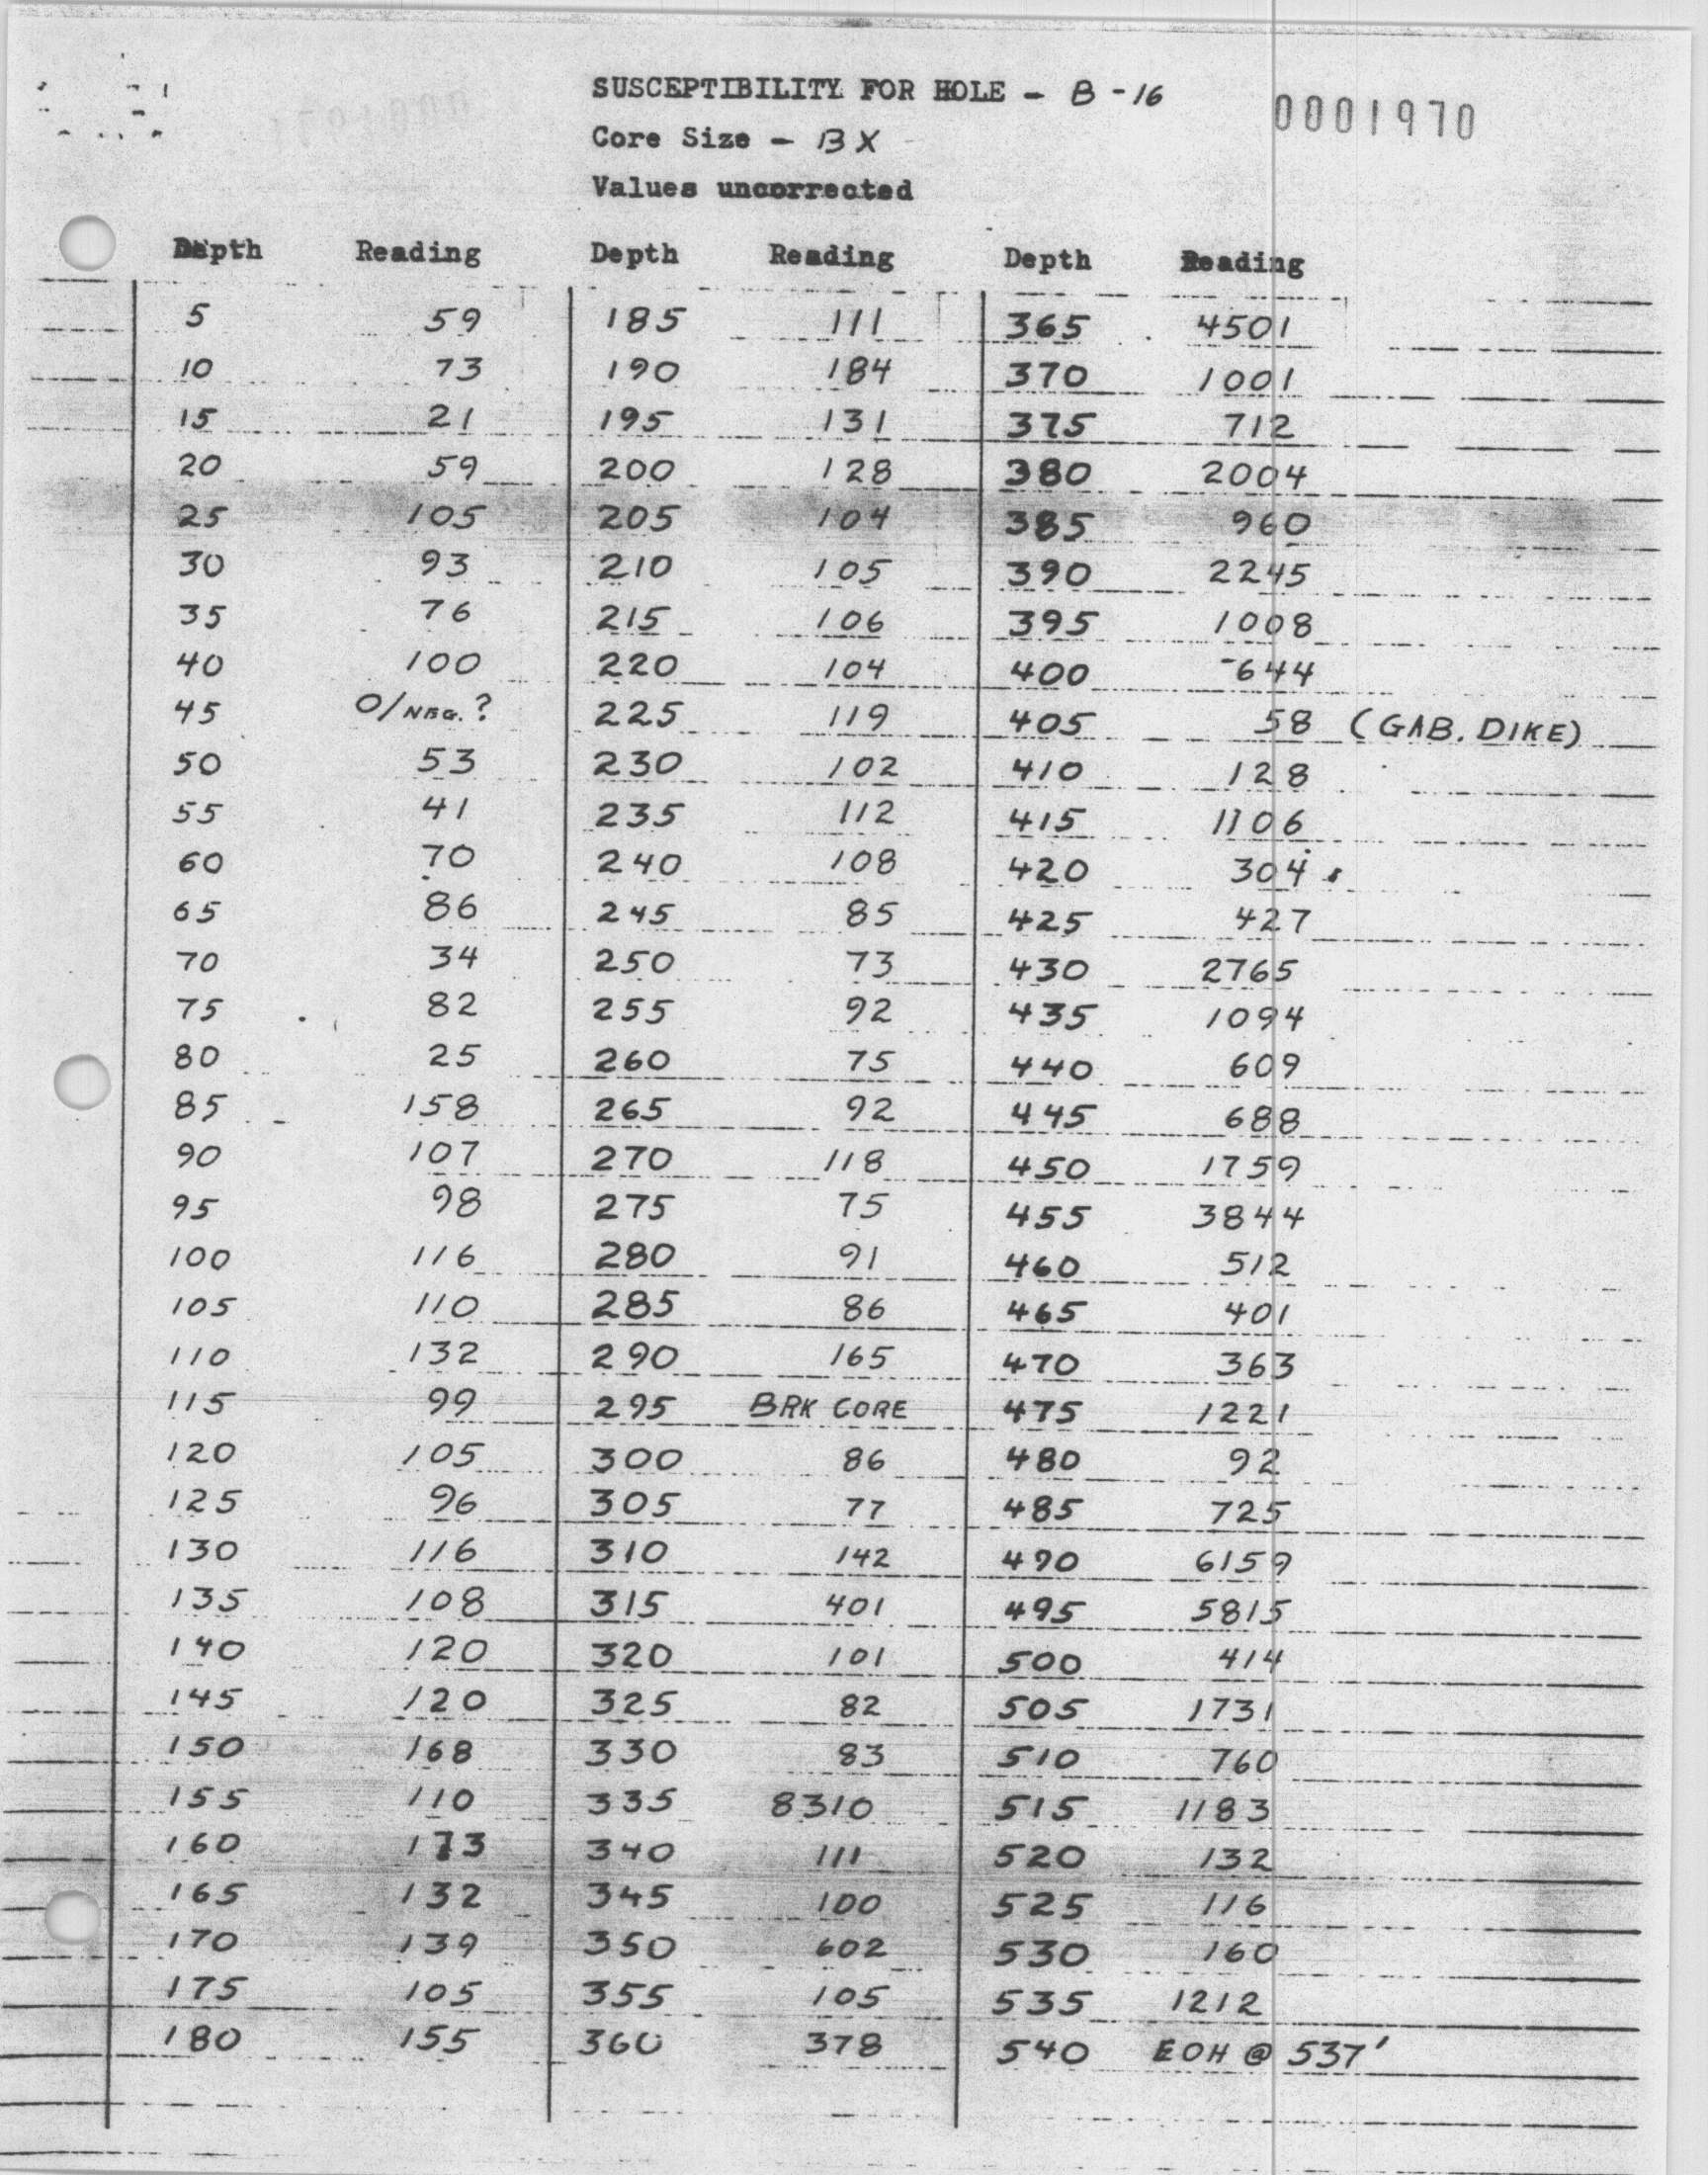 SUSCEPTIBILITY FOR HOLE - B-16
0001970
Core Size - BX
Values uncorrected
Depth Reading Depth Reading Depth Reading
5 59 185 111 365 4501
10 73 190 184 370 1001
15 21 195 131 375 712
20 59 200 128 380 2004
25 105 205 104 385 960
30 93 210 105 390 2245
35 76 215 106 395 1008
40 100 220 104 400 -644
45 0/NEG.? 225 119 405 58 (GAB. DIKE)
50 53 230 102 410 128
55 41 235 112 415 1106
60 70 240 108 420 304
65 86 245 85 425 427
70 34 250 73 430 2765
75 82 255 92 435 1094
80 25 260 75 440 609
85 158 265 92 445 688
90 107 270 118 450 1759
95 98 275 75 455 3844
100 116 280 91 460 512
105 110 285 86 465 401
110 132 290 165 470 363
115 99 295 BRK CORE 475 1221
120 105 300 86 480 92
125 96 305 77 485 725
130 116 310 142 490 6159
135 108 315 401 495 5815
140 120 320 101 500 414
145 120 325 82 505 1731
150 168 330 83 510 760
155 110 335 8310 515 1183
160 173 340 111 520 132
165 132 345 100 525 116
170 139 350 602 530 160
175 105 355 105 535 1212
180 155 360 378 540 EOH @ 537'